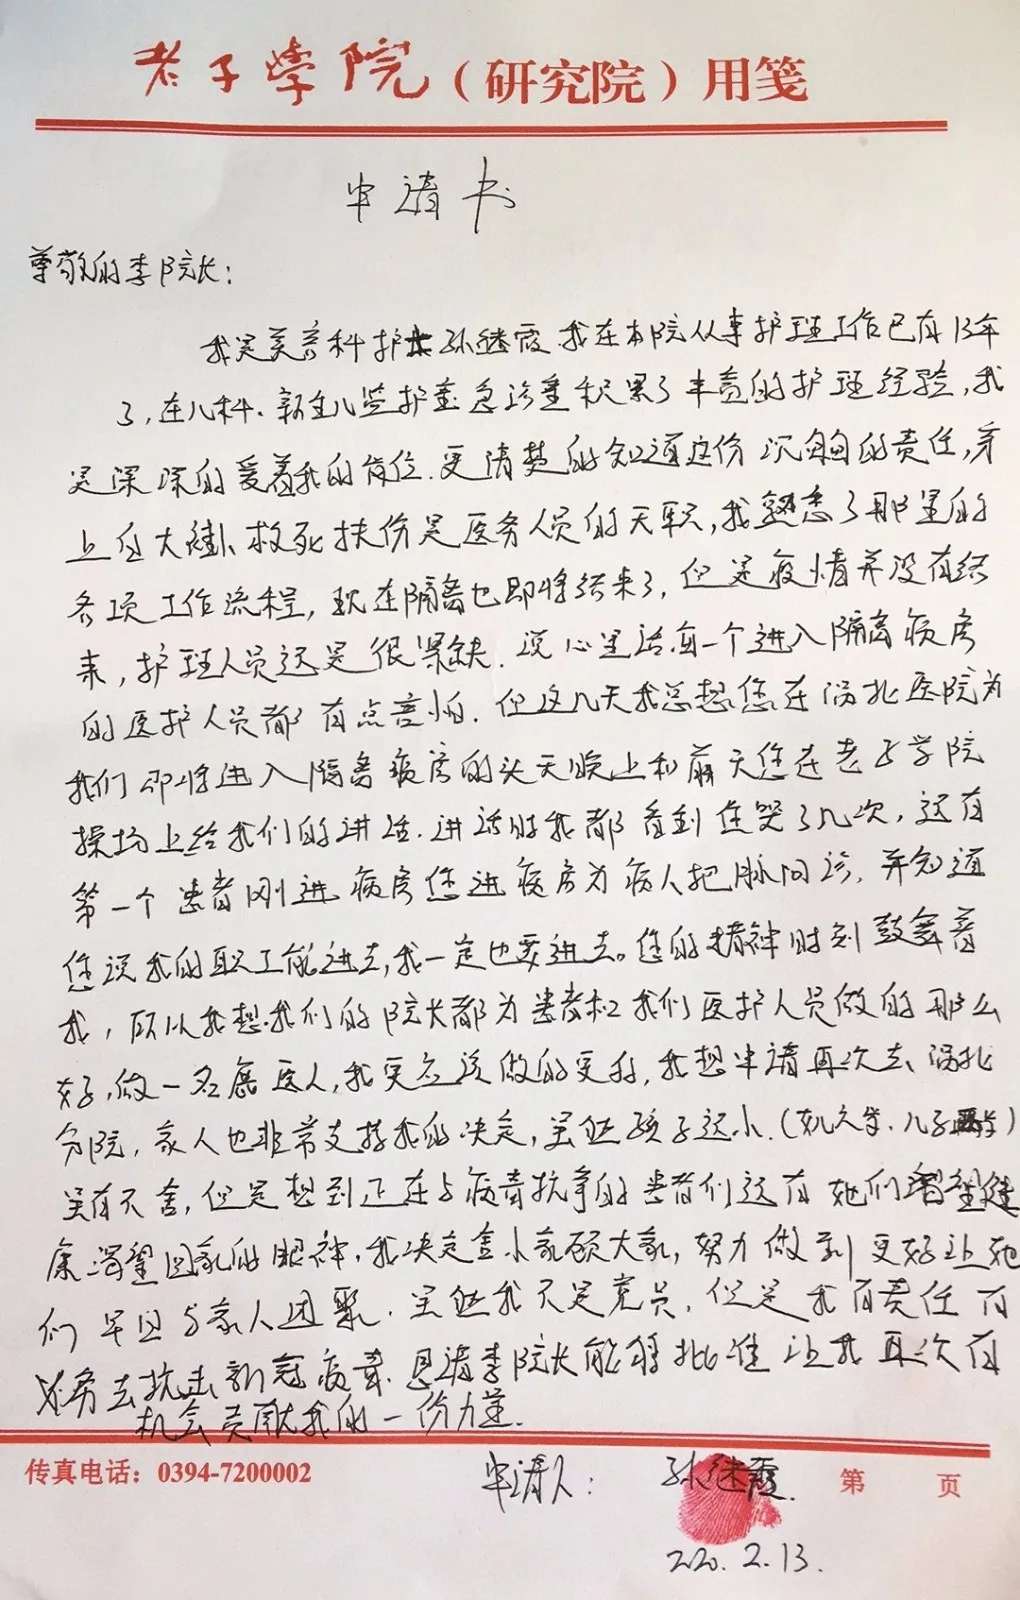 老子学院（研究院）用笺
申请书
尊敬的李院长：
我是美容科护士孙继霞,我在本院从事护理工作已有13年
了,在儿科、新生儿监护室急诊室积累了丰富的护理经验,我
是深深的爱着我的岗位.更清楚的知道这份沉甸甸的责任,身
上白大褂、救死扶伤是医务人员的天职,我熟悉了那里的
各项工作流程,现在隔离也即将结束了,但是疫情并没有结
束,护理人员还是很紧缺.说心里话每一个进入隔离病房
的医护人员都有点害怕.但这几天我总想您在涡北医院为
我们即将进入隔离病房的头天晚上和前天您在老子学院
操场上给我们的讲话.讲话时我都看到您哭了几次,还有
第一个患者刚进病房您进病房为病人把脉问诊,并知道
您说我的职工能进去,我一定也要进去。您的精神时刻鼓舞着
我,所以我想.我们的院长都为患者和我们医护人员做的那么
好,做一名鹿医人,我更应该做的更好,我想申请再次去涡北
分院,家人也非常支持我的决定,虽然孩子还小.(女儿六岁.儿子)
虽有不舍,但是想到正在与病毒抗争的患者们还有她们渴望健
康渴望回家的眼神,我决定舍小家顾大家,努力做到更好让她
们早日与家人团聚.虽然我不是党员,但是我有责任有
义务去抗击新冠病毒.恳请李院长能够批准让我再次有
机会贡献我的一份力量.
传真电话：0394-7200002
申请人：孙继霞.
第 页
2020.2.13.